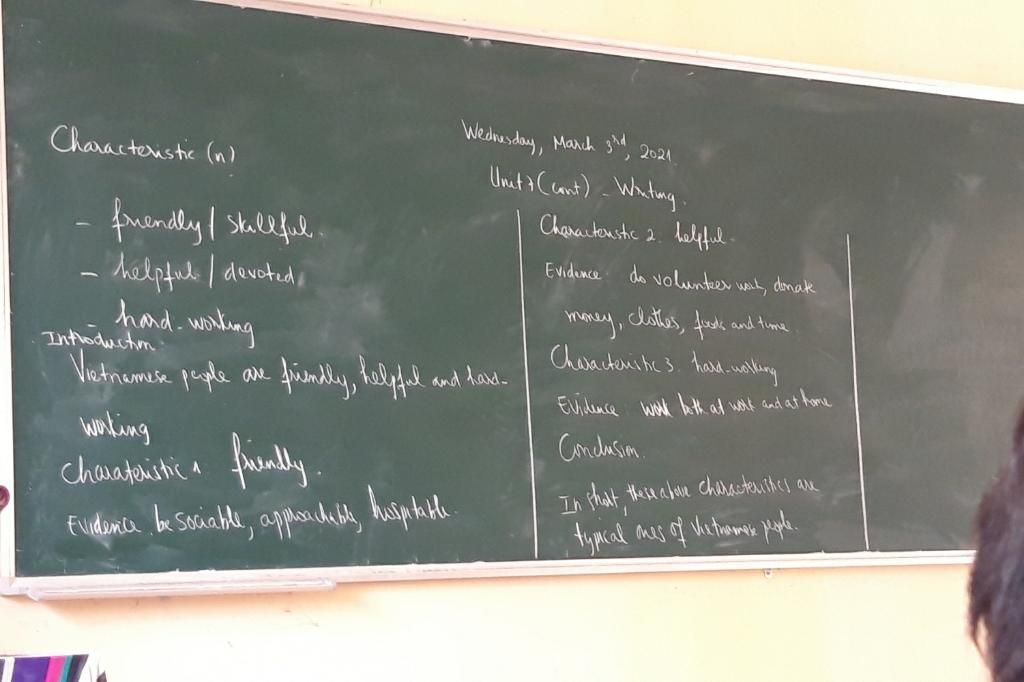 Wednesday, March 3rd, 2021.
Unit 7 (cont) - Writing.
Characteristic (n)
- friendly / skillful.
- helpful / devoted
hard-working
Introduction.
Vietnamese people are friendly, helpful and hard-
working
Charateristic 1 friendly.
Evidence. be sociable, approachable, hospitable.
Characteristic 2. helpful.
Evidence do volunteer work, donate
money, clothes, foods and time.
Characteristic 3. hard-working
Evidence work both at work and at home
Conclusion.
In short, these above characteristics are
typical ones of Vietnamese people.